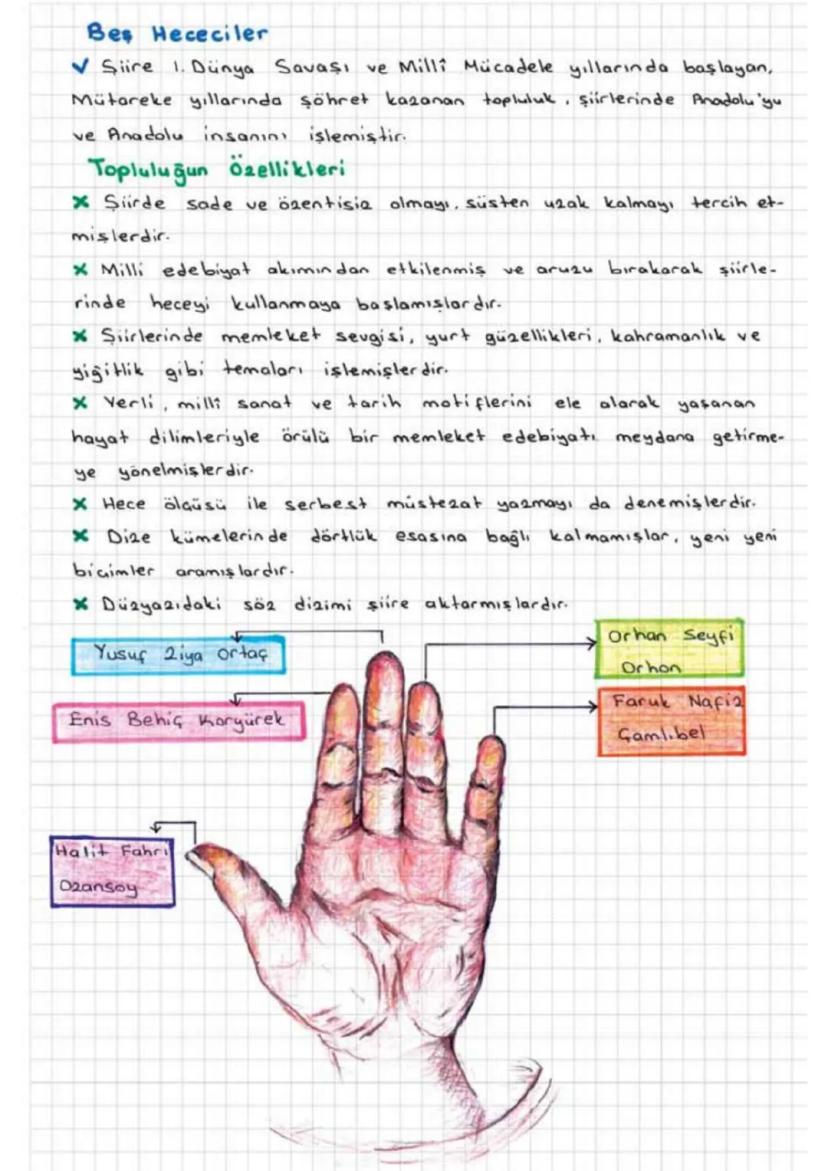 Beş Hececiler
✓ Şiire 1. Dünya Savaşı ve Millî Mücadele yıllarında başlayan,
Mütareke yıllarında şöhret kazanan topluluk, şiirlerinde Anadolu'yu
ve Anadolu insanını işlemiştir.
Topluluğun Özellikleri
x Şiirde sade ve özentisiz olmayı, süsten uzak kalmayı tercih et-
mişlerdir.
x Milli edebiyat akımından etkilenmiş ve aruzu bırakarak şiirle-
rinde heceyi kullanmaya başlamışlardır.
x Şiirlerinde memleket sevgisi, yurt güzellikleri, kahramanlık ve
yiğitlik gibi temaları işlemişlerdir.
x Yerli, millî sanat ve tarih motiflerini ele alarak yaşanan
hayat dilimleriyle örülü bir memleket edebiyatı meydana getirme-
ye yönelmişlerdir.
x Hece ölçüsü ile serbest müstezat yazmayı da denemişlerdir.
x Dize kümelerinde dörtlük esasına bağlı kalmamışlar, yeni yeni
biçimler aramışlardır.
x Düzyazıdaki söz dizimi şiire aktarmışlardır.
Yusuf Ziya Ortaç
Orhan Seyfi
Orhon
Enis Behiç Koryürek
Faruk Nafiz
Çamlıbel
Halit Fahri
Ozansoy